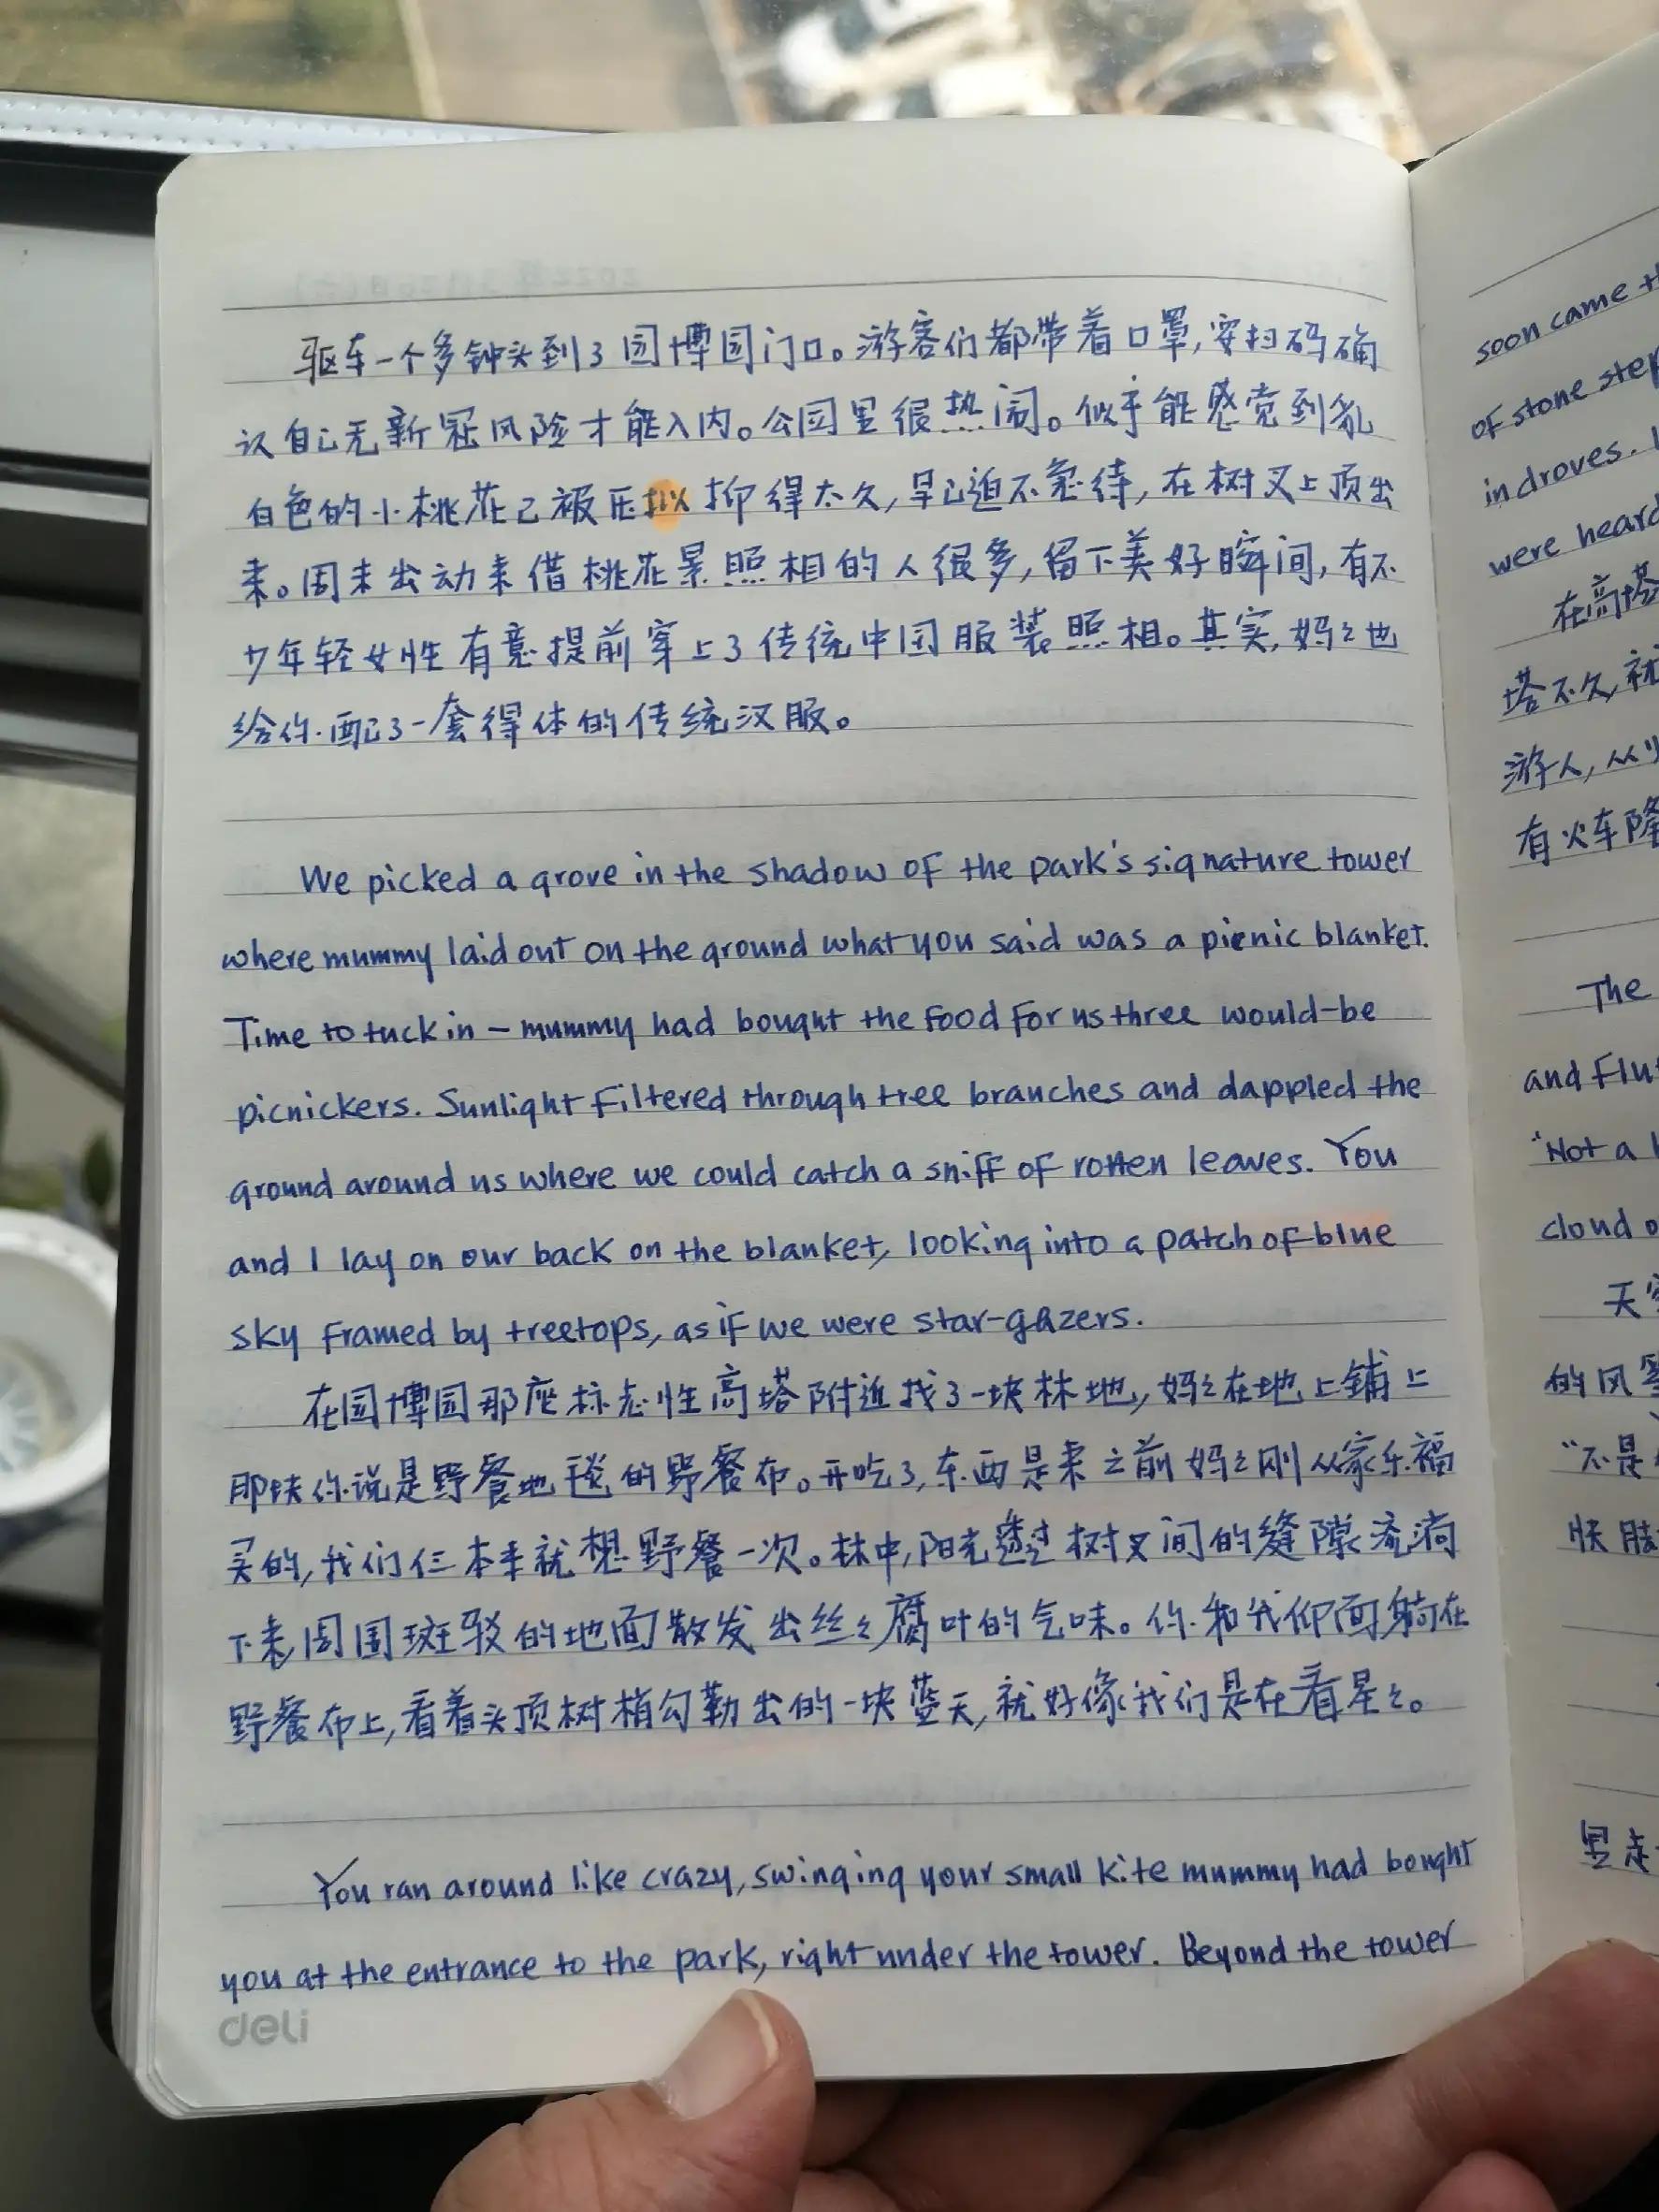 驱车一个多钟头到了园博园门口。游客们都带着口罩,安扫码确
认自己无新冠风险才能入内。公园里很热闹。似乎能感觉到乳
白色的小桃花已被压抑得太久,早已迫不急待,在树叉上顶出
来。周末出动来借桃花景照相的人很多,留下美好瞬间,有不
少年轻女性有意提前穿上了传统中国服装照相。其实,妈々也
给你配了一套得体的传统汉服。
We picked a grove in the shadow of the park's signature tower
where mummy laid out on the ground what you said was a picnic blanket.
Time to tuck in – mummy had bought the food for us three would-be
picnickers. Sunlight filtered through tree branches and dappled the
ground around us where we could catch a sniff of rotten leaves. You
and I lay on our back on the blanket, looking into a patch of blue
sky framed by treetops, as if we were star-gazers.
在园博园那座标志性高塔附近找了一块林地,妈々在地上铺上
那块你说是野餐地毯的野餐布。开吃了,东西是来之前妈々刚从家乐福
买的,我们仨本来就想野餐一次。林中,阳光透过树叉间的缝隙流淌
下来,周围斑驳的地面散发出丝々腐叶的气味。你和我仰面躺在
野餐布上,看着头顶树梢勾勒出的一块蓝天,就好像我们是在看星々。
You ran around like crazy, swinging your small kite mummy had bought
you at the entrance to the park, right under the tower. Beyond the tower
deli
soon came
of stone
in droves.
were heard
在高塔
塔不久,就
游人,从
有火车隆
The
and
"Not a
cloud
天
的风筝
"不是
快
里走